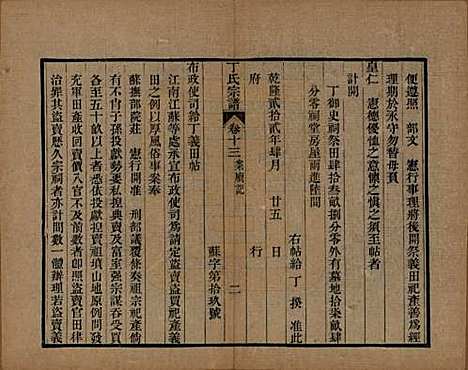 便遵照 部文 憲行事理將後開祭義田祀產善爲經
理期於永守勿替毋負
皇仁 憲德優恤之意懍之愼之須至帖者
計開
丁御史祠祭田肆拾叁畝捌分零外有墓地拾柒畝肆
分零祠堂房屋兩進陸間
右帖給丁 撰 准此
乾隆貳拾貳年肆月 廿五 日
府 行
丁氏宗譜 卷十三 義產記 二
蘇字第拾玖號
布政使司給丁義田帖
江南江蘇等處承宣布政使司爲請定盜賣盜買祀產義
田之例以厚風俗事案奉
蘇撫部院莊 憲行開准 刑部議覆條奏祖宗祀產倘
有不肖子孫投獻勢要私捏典賣及富室强宗謀吞受買
各至五十畝以上者悉依投獻捏賣祖墳山地原例問發
充軍田產收回賣價入官不及前數者卽照盜賣官田律
治罪其盜賣歷久宗祠者亦計間數一體辦理若盜賣義